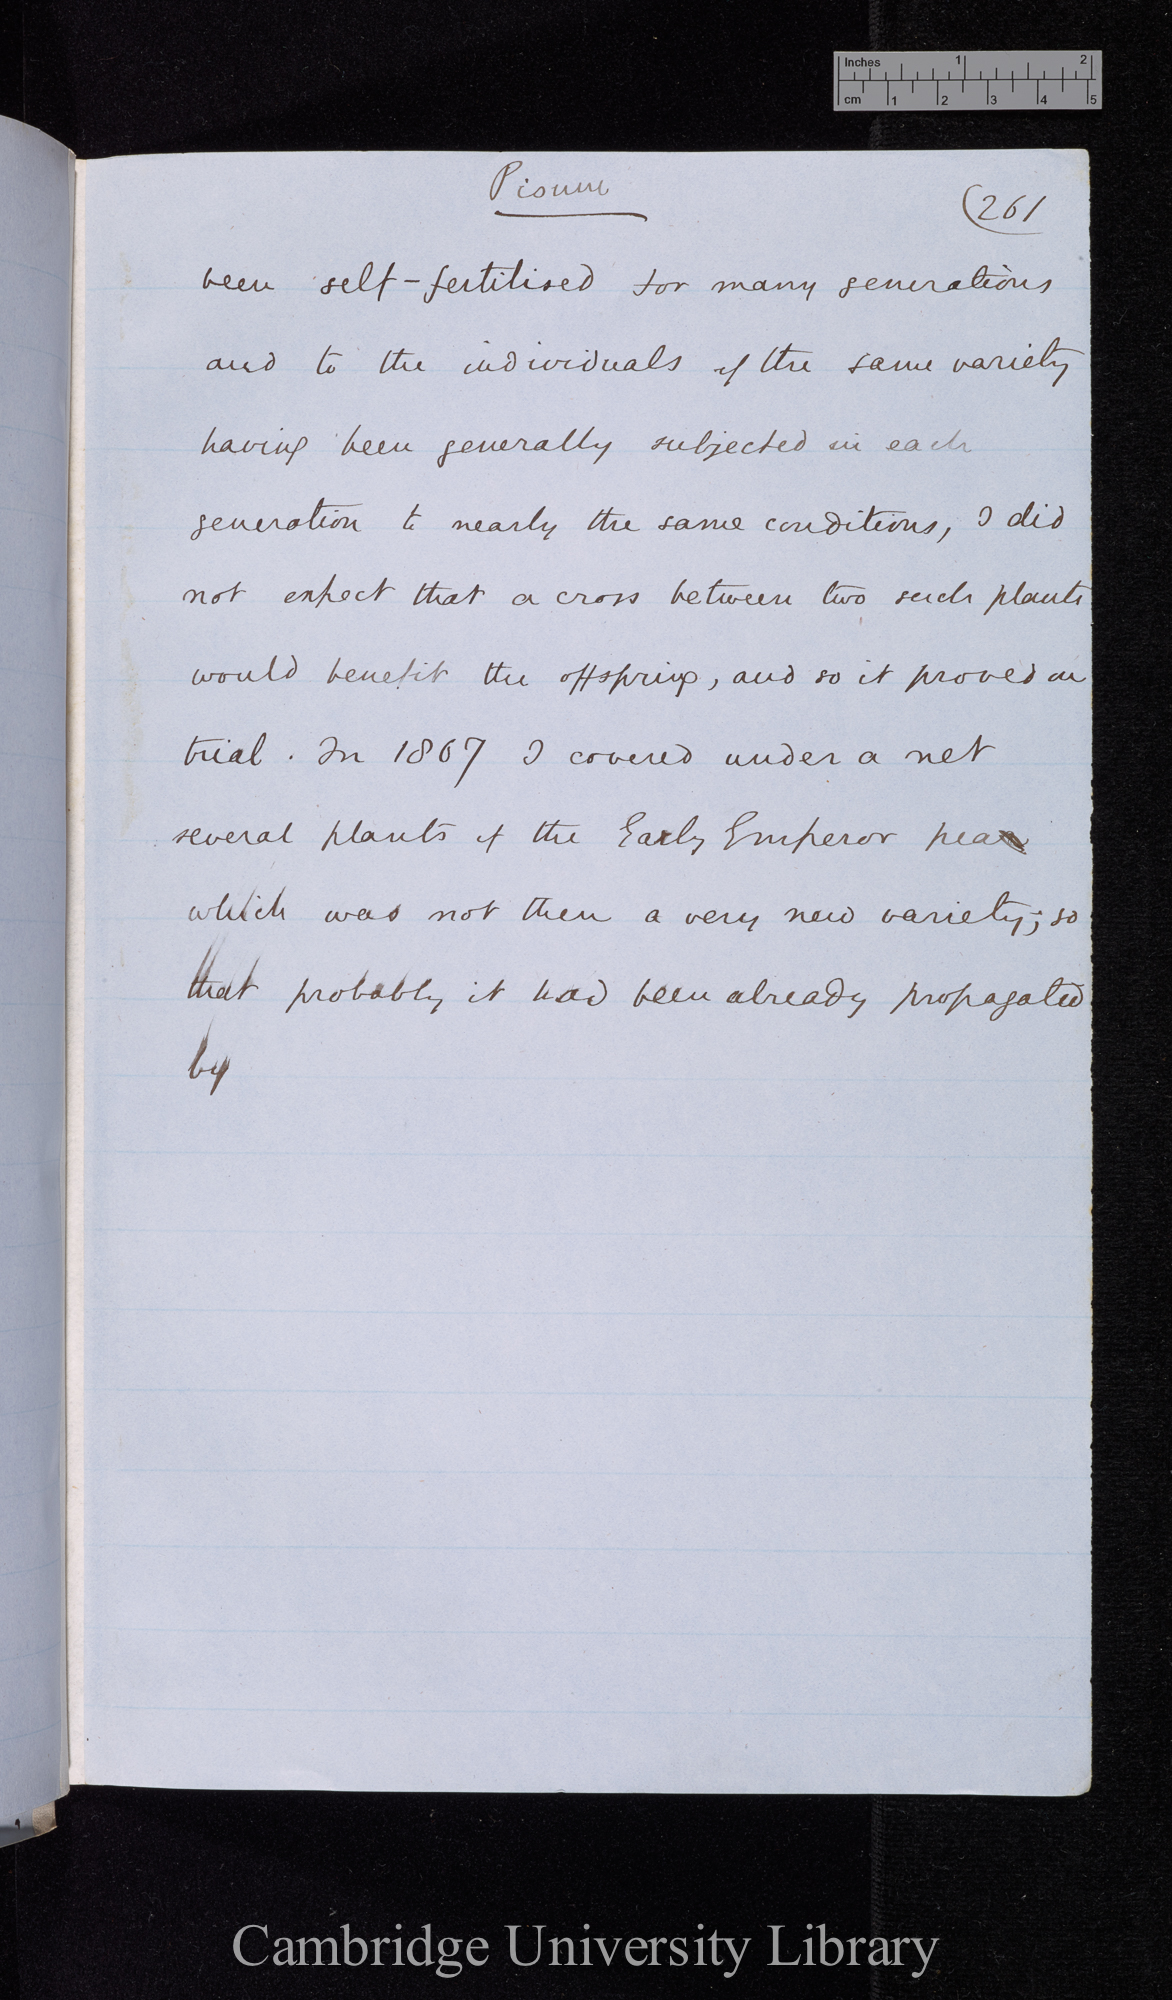 Inches 1 2
cm 1 2 3 4 5
Pisum
(261
been self-fertilised for many generations
and to the individuals of the same variety
having been generally subjected in each
generation to nearly the same conditions, I did
not expect that a cross between two such plants
would benefit the offspring, and so it proved on
trial. In 1867 I covered under a net
several plants of the Early Emperor pea
which was not then a very new variety; so
that probably it had been already propagated
by
Cambridge University Library